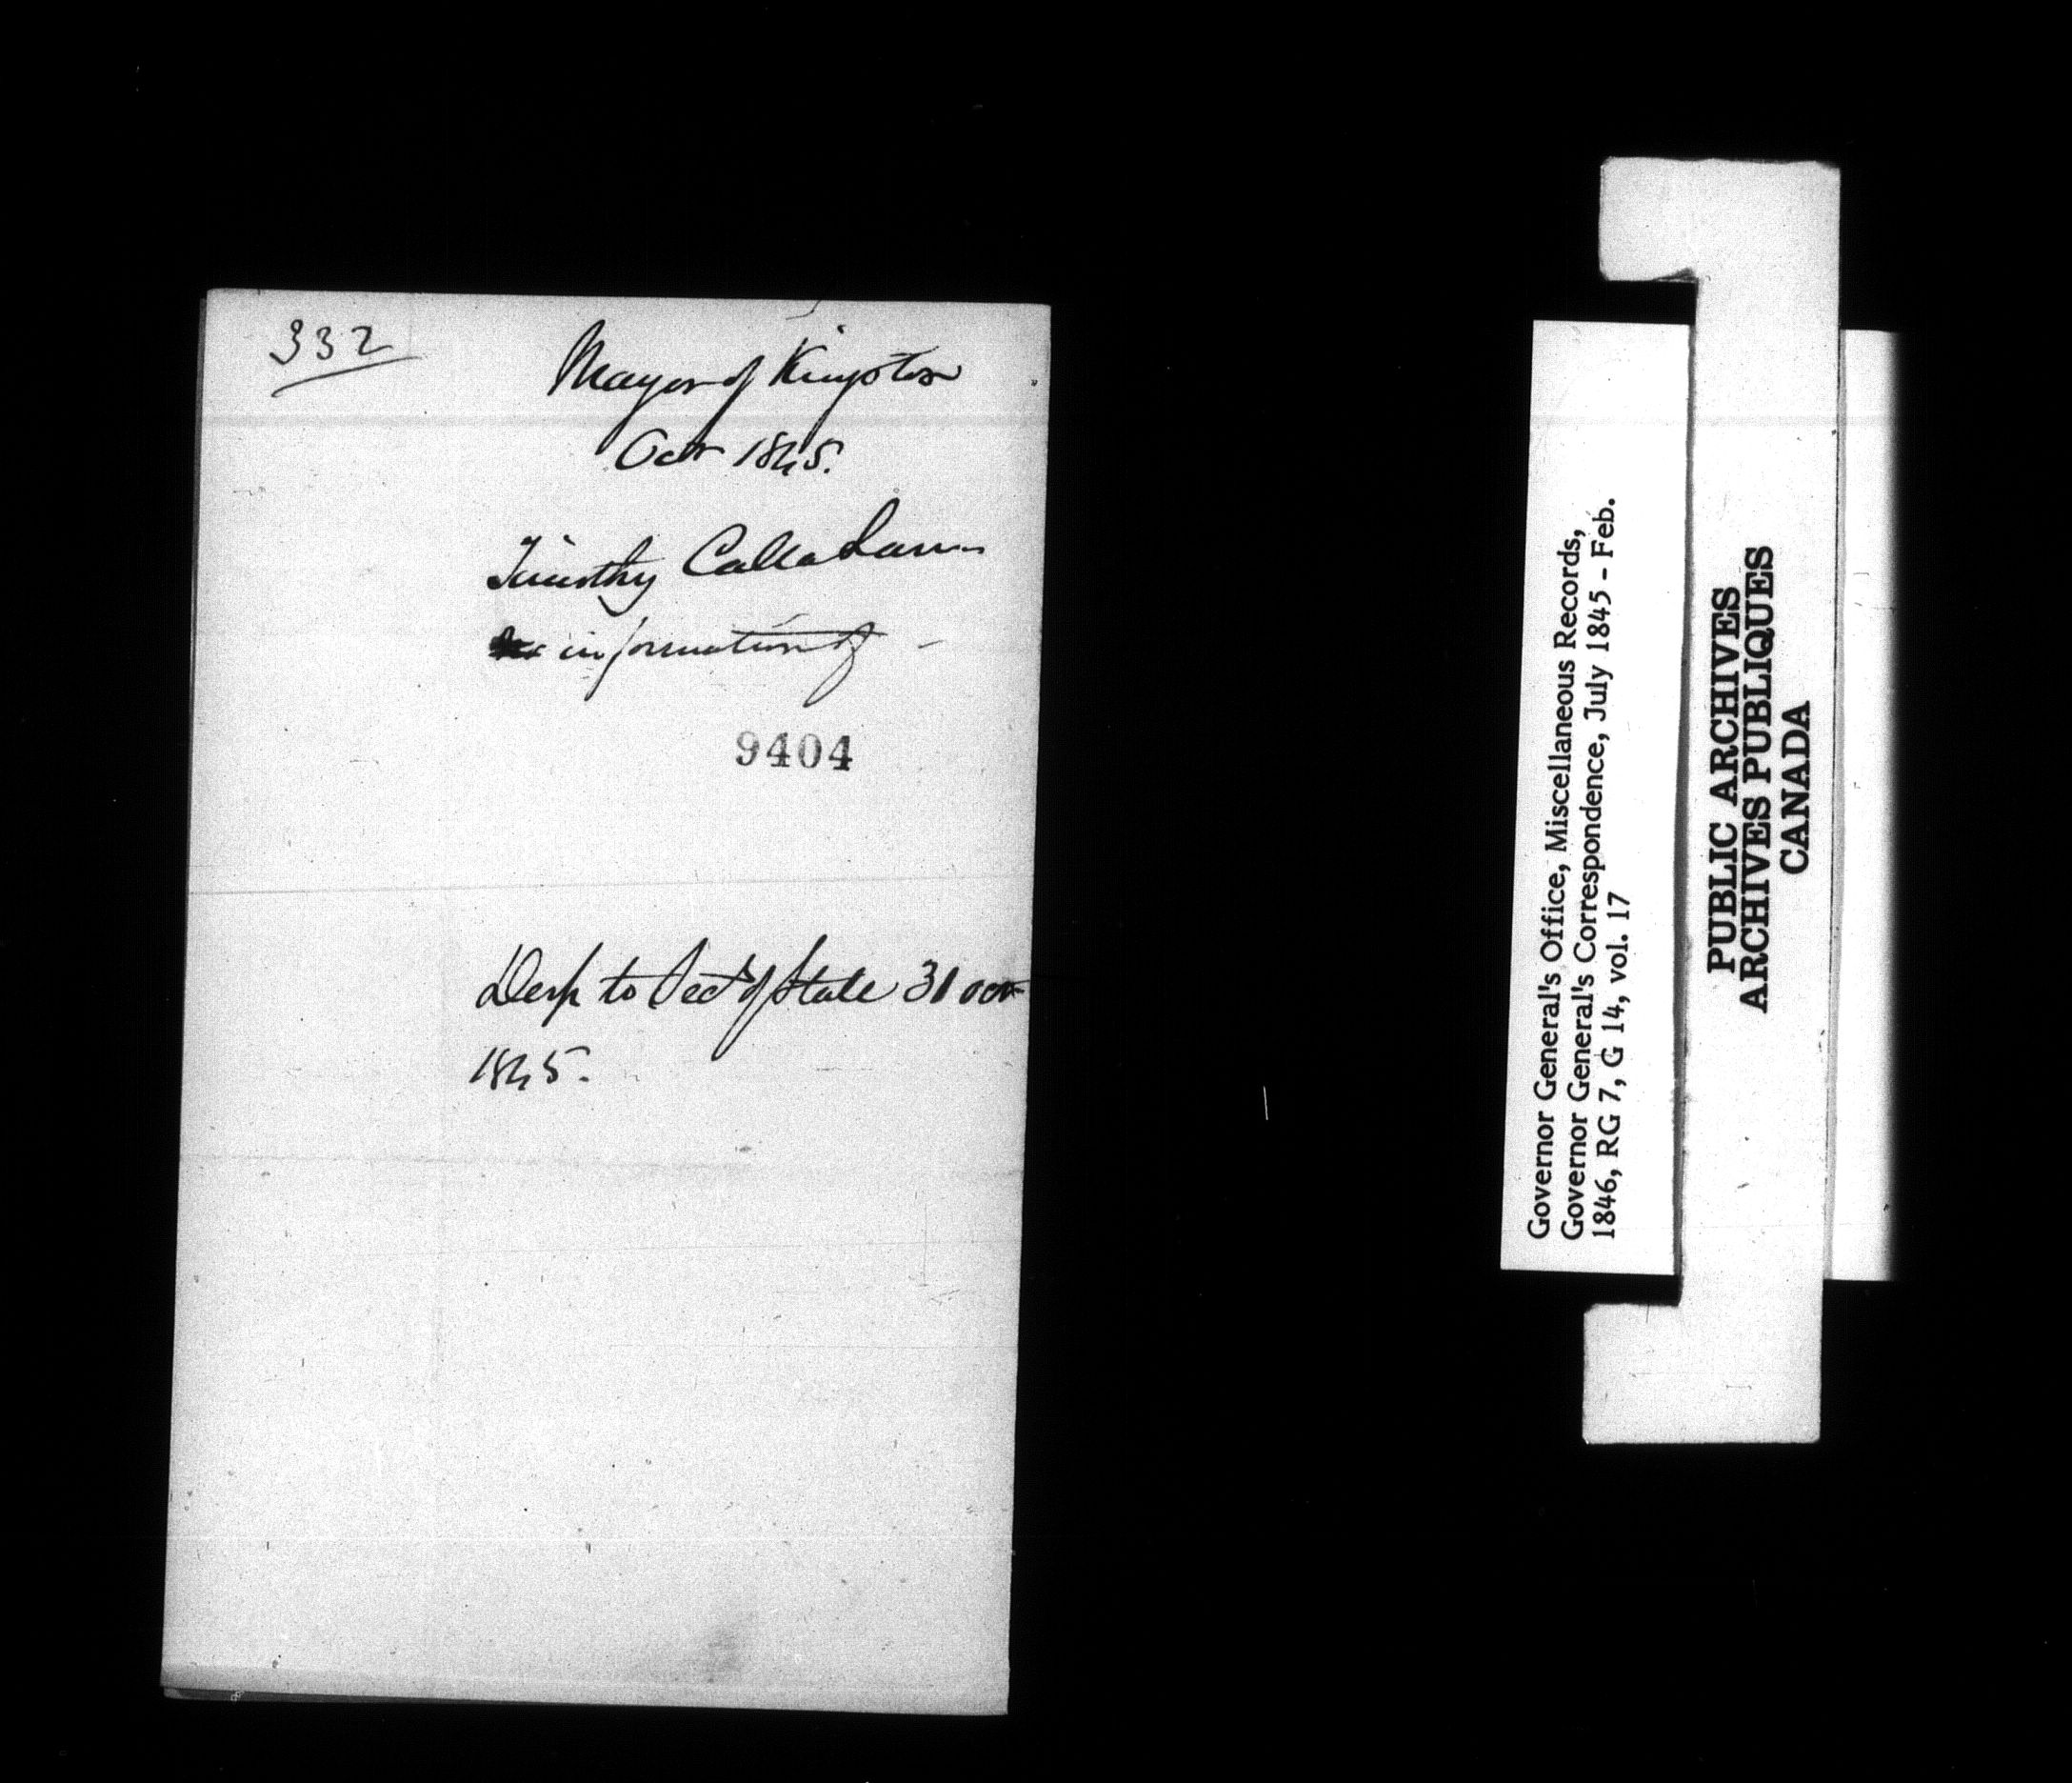 332
Mayor of Kingston
Oct 1845.
Timothy Callahan
information of
9404
Desp to Secy of State 31 Oct
1845.
Governor General's Office, Miscellaneous Records,
Governor General's Correspondence, July 1845 - Feb.
1846, RG 7, G 14, vol. 17
PUBLIC ARCHIVES
ARCHIVES PUBLIQUES
CANADA